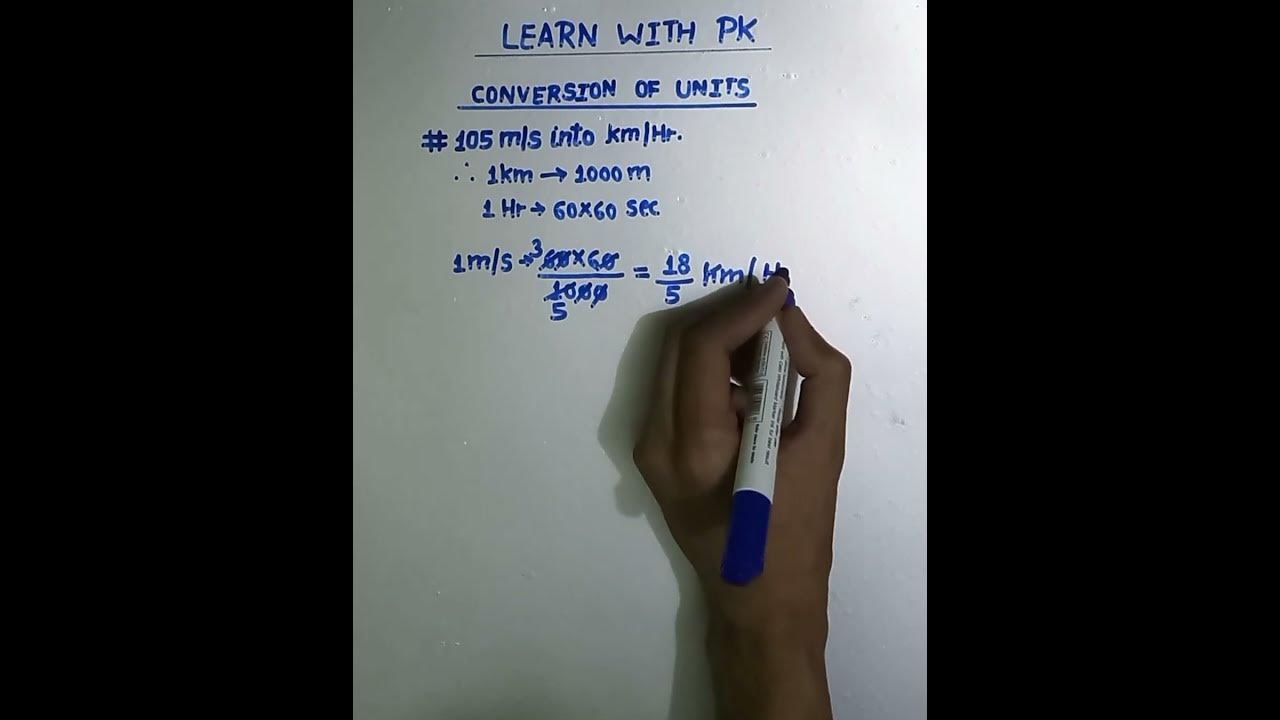 LEARN WITH PK
CONVERSION OF UNITS
# 105 m/s into km/Hr.
∴ 1km → 1000 m
1 Hr → 60×60 sec
3
1m/s → 60×60 = 18 km/H
1000 5
5